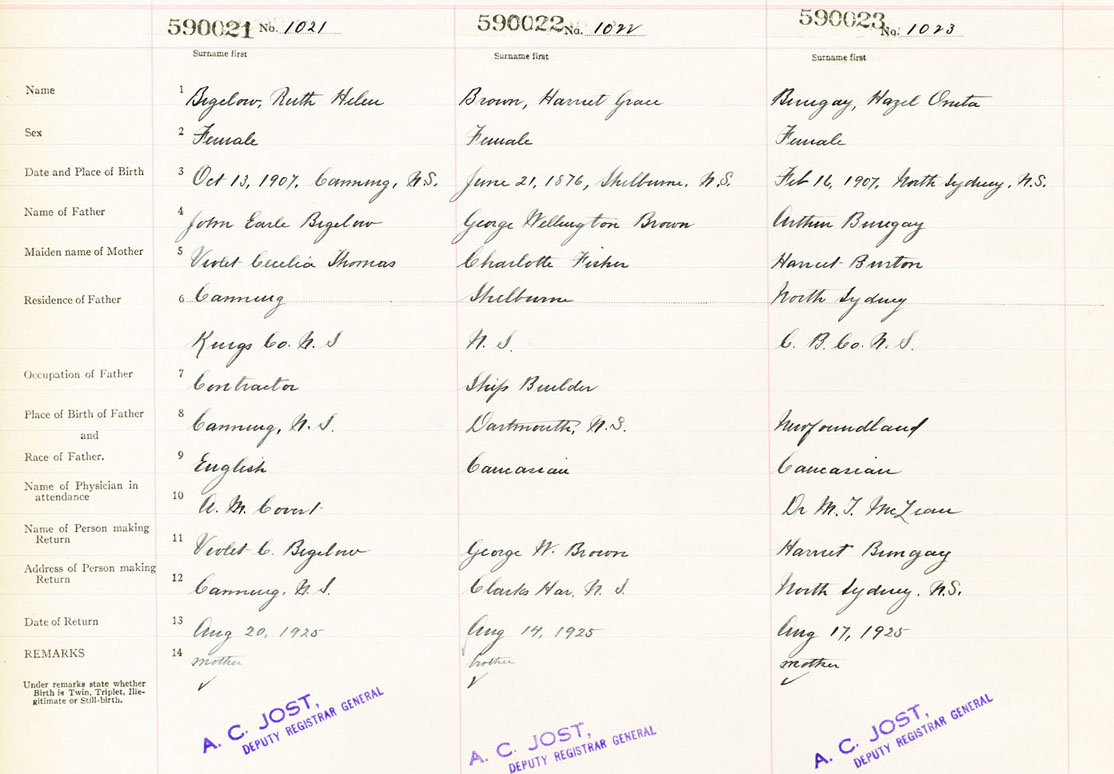 590021 No. 1021 590022 No. 1022 590023 No. 1023
Surname first Surname first Surname first
Name 1 Bigelow, Ruth Helen Brown, Harriet Grace Bungay, Hazel Oneta
Sex 2 Female Female Female
Date and Place of Birth 3 Oct 13, 1907, Canning, N.S. June 21, 1876, Shelburne, N.S. Feb 16, 1907, North Sydney, N.S.
Name of Father 4 John Earle Bigelow George Wellington Brown Arthur Bungay
Maiden name of Mother 5 Violet Cecelia Thomas Charlotte Fisher Harriet Burton
Residence of Father 6 Canning Shelburne North Sydney
Kings Co. N.S N.S. C.B. Co. N.S.
Occupation of Father 7 Contractor Ship Builder
Place of Birth of Father 8 Canning, N.S. Dartmouth, N.S. Newfoundland
and
Race of Father. 9 English Caucasian Caucasian
Name of Physician in
attendance 10 A. M. Covert Dr M. T. McLean
Name of Person making
Return 11 Violet C. Bigelow George W. Brown Harriet Bungay
Address of Person making
Return 12 Canning, N.S. Clarks Har. N.S. North Sydney, N.S.
Date of Return 13 Aug 20, 1925 Aug 14, 1925 Aug 17, 1925
REMARKS 14 mother brother mother
Under remarks state whether
Birth is Twin, Triplet, Ille-
gitimate or Still-birth.
A. C. JOST, A. C. JOST, A. C. JOST,
DEPUTY REGISTRAR GENERAL DEPUTY REGISTRAR GENERAL DEPUTY REGISTRAR GENERAL